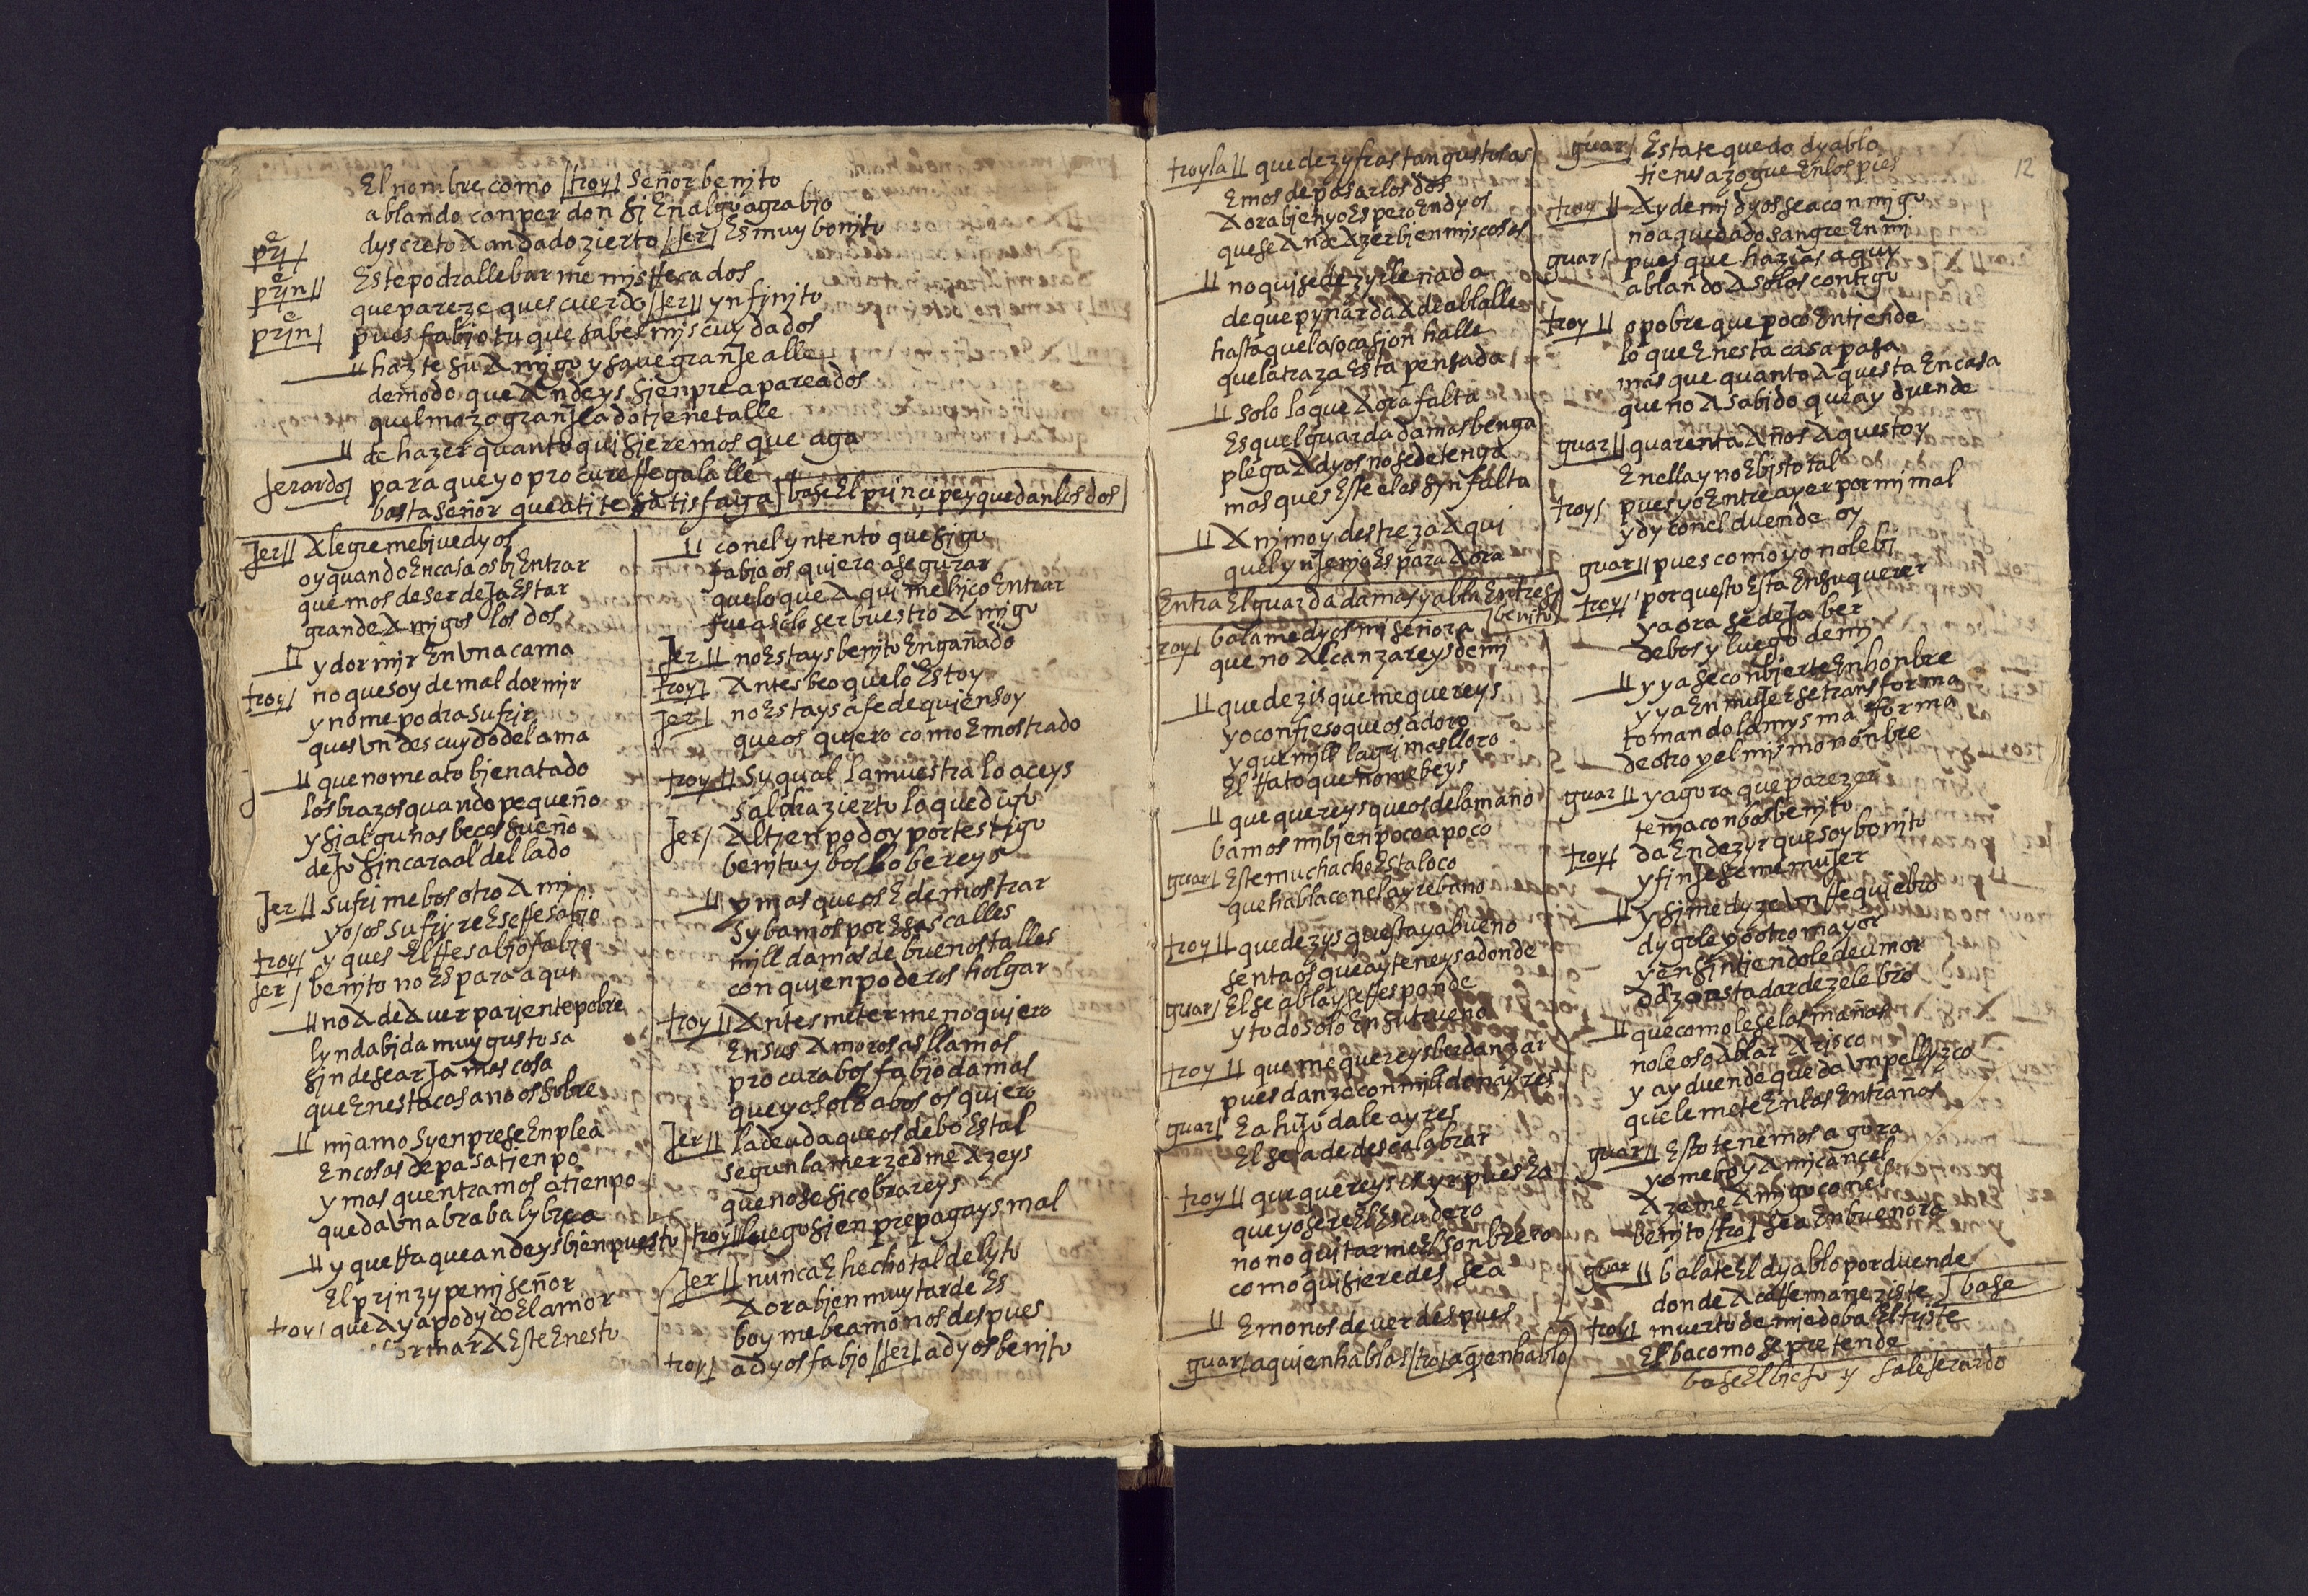 El nombre como |troy| señor benjto
ablando con perdon sj En algo agrabjo
prj| dyscreto A andado zierto |Jer| Es muy bonjto
prjn|| Este podra llebarme mjs rrecados
que pareze ques cuerdo |Jer|| ynfinjto
prjn| pues fabjo tu que sabes mjs cuydados
|| hazte su Amjgo y sque granJealle
de modo que Andeys sjenpre apareados
quel mozo granJeado tjene talle
|| de hazer quanto qujsjeremos que aga
Jerardo| para que yo procure rregalalle
basta señor que a ti te satisfaga | base El principe y quedan los dos
Jer|| Alegre me bjue dyos
oy quando En casa os bj Entrar
que mos de ser deJa Estar
grande Amjgos los dos
|| y dormjr En vna cama
troy| no que soy de mal dormjr
y no me podra sufrjr
ques vn descuydo del ama
|| que no me ato bjen atado
los brazos quando pequeño
y sj algunas beces sueño
deJo sin cara al del lado
Jer|| sufrime bos otro A mj
yo os sufrjre Ese rresabjo
troy| y ques El rresabjo fabjo
Jer| benjto no Es para aqui
|| no A de Auer parjente pobre
lynda bjda muy gustosa
sin desear Jamas cosa
que En esta casa no os sobre
|| mj amo syenpre se Enplea
En cosas de pasatjenpo
y mas quentramos a tjenpo
queda vna braba lybrea
|| y querra que andeys bjen puesto
El prjnzype mj señor
troy| que Aya podydo El amor
formar A Este En esto
|| con el yntento que sigo
fabjo os qujero asegurar
que lo que Aqui me hico Entrar
fue a solo ser buestro Amigo
Jer|| no Estays benjto Engañado
troy| Antes beo que lo Estoy
Jer| no Estays a fe de quien soy
que os qujero como E mostrado
troy|| sy qual la muestra lo aceys
saldra zierto lo que digo
Jer| Al tjenpo doy por testigo
benjto y bos lo bereys
|| y mas que os E de mostrar
sy bamos por Esas calles
mjll damas de buenos talles
con quien poderos holgar
troy|| Antes meterme no qujero
En sus Amorosas llamas
procura bos fabjo damas
que yo solo a bos os qujero
Jer|| la deuda que os debo Es tal
segun la merzed me Azeys
que no se si cobrareys
troy|| luego sjenpre pagays mal
Jer|| nunca E hecho tal delyto
Aora bjen muy tarde Es
boyme beamonos despues
troy| adyos fabjo |Jer| adyos benjto
12
troyla|| que de zyfras tan gustosas
Emos de pasar los dos
Aora bjen yo Espero En dyos
que se An de Azer bjen mjs cosas
|| no quise dezylle nada
de que pynarda A de ablalle
hasta que la ocasjon halle
que la traza Esta pensada
|| solo lo que Aora falta
Es quel guardadamas benga
plega A dyos no se detenga
mas ques Este el es syn falta
|| Anjmo y destreza Aqui
quel ynJenjo Es para Aora
Entra El guardadamas y abla Entre si benjto
troy| balame dyos mj señora
que no Alcanzareys de mj
|| que dezis que me quereys
yo confieso que os adoro
y que mjll lagrimas lloro
El rrato que no me beys
|| que quereys que os de la mano
bamos mj bjen poco a poco
guar| Este muchacho Esta loco
que habla con el ayre bano
troy|| que dezys questa ya bueno
sentaos que ay teneys adonde
guar| El se abla y se rresponde
y todo solo En su trueno
troy|| que me quereys ber danzar
pues danzo con mjll donayres
guar| Ea hijo dale ayres
El se a de descalabrar
troy|| que quereys yr pues Ea
que yo sere El Escudero
no no quitarme El sonbrero
como quisieredes sea
|| Emonos de ver despues
guar| a quien hablas |tro| a quien hablo
guar| Estate quedo dyablo
tienes azogue En los pies
troy|| Ay de mj dyos sea conmjgo
no a quedado sangre En mj
guar| pues que hazias aquy
ablando A solas contigo
troy|| o pobre que poco Entiende
lo que En esta casa pasa
mas que quanto A questa En casa
que no A sabido que ay duende
guar|| quarenta Años A questoy
En ella y no E bjsto tal
troy| pues yo Entre ayer por mj mal
y dy con el duende oy
guar|| pues como yo no le bj
troy| porquesto Esta En su querer
y aora se deJa ber
de bos y luego de mj
|| y ya se conbjerte En honbre
y ya En muJer se transforma
tomando la mysma forma
de otro y el mjsmo nonbre
guar|| y agora que parezer
tenja con bos benjto
troy| da En dezyr que soy bonjto
y finJeseme muJer
|| y sj me dyze vn rrequiebro
dygole yo otro mayor
y en sintiendole de umor
da zonasta dar de zelebro
|| que como le se las mañas
no le oso ablar A risco
y ay duende que da vn pellyzco
que le mete En las Entrañas
guar|| Esto tenemos agora
yo me boy A mj cancel
Azeme Amjgo con el
benjto |tro| sea En buenora
guar|| balate El dyablo por duende
donde A caffe maneziste | base
troy| muerto de mjedo ba El tryste
El ba como se pretende
base El biejo y sale Jerardo